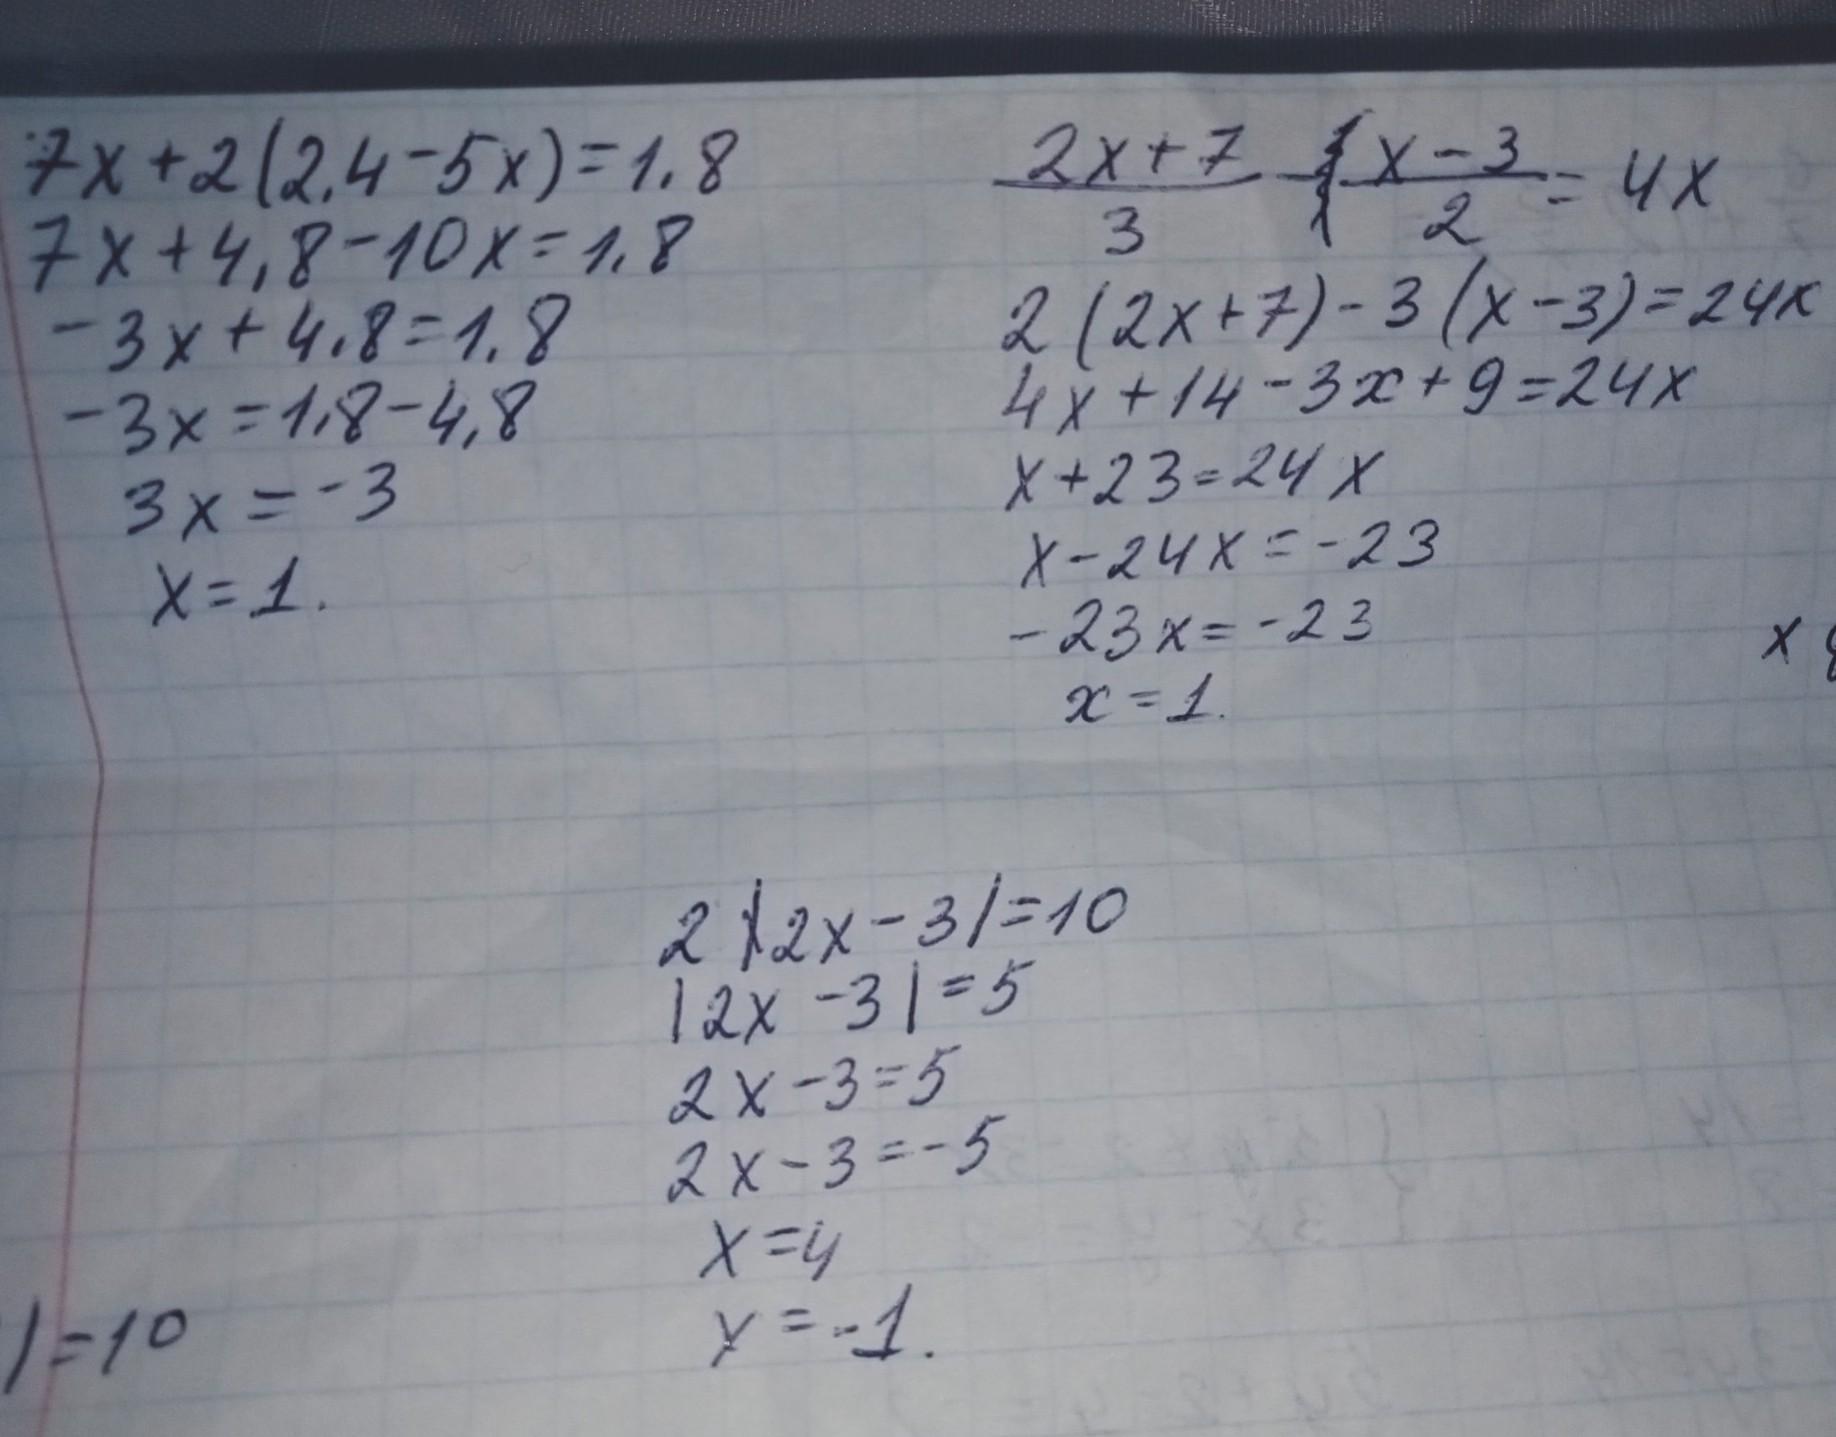 7x+2(2,4-5x)=1,8
7x+4,8-10x=1,8
-3x+4,8=1,8
-3x=1,8-4,8
3x=-3
x=1.
2x+7/3 - x-3/2 = 4x
2(2x+7)-3(x-3)=24x
4x+14-3x+9=24x
x+23=24x
x-24x=-23
-23x=-23
x=1.
x
2|2x-3|=10
|2x-3|=5
2x-3=5
2x-3=-5
x=4
x=-1.
|=10